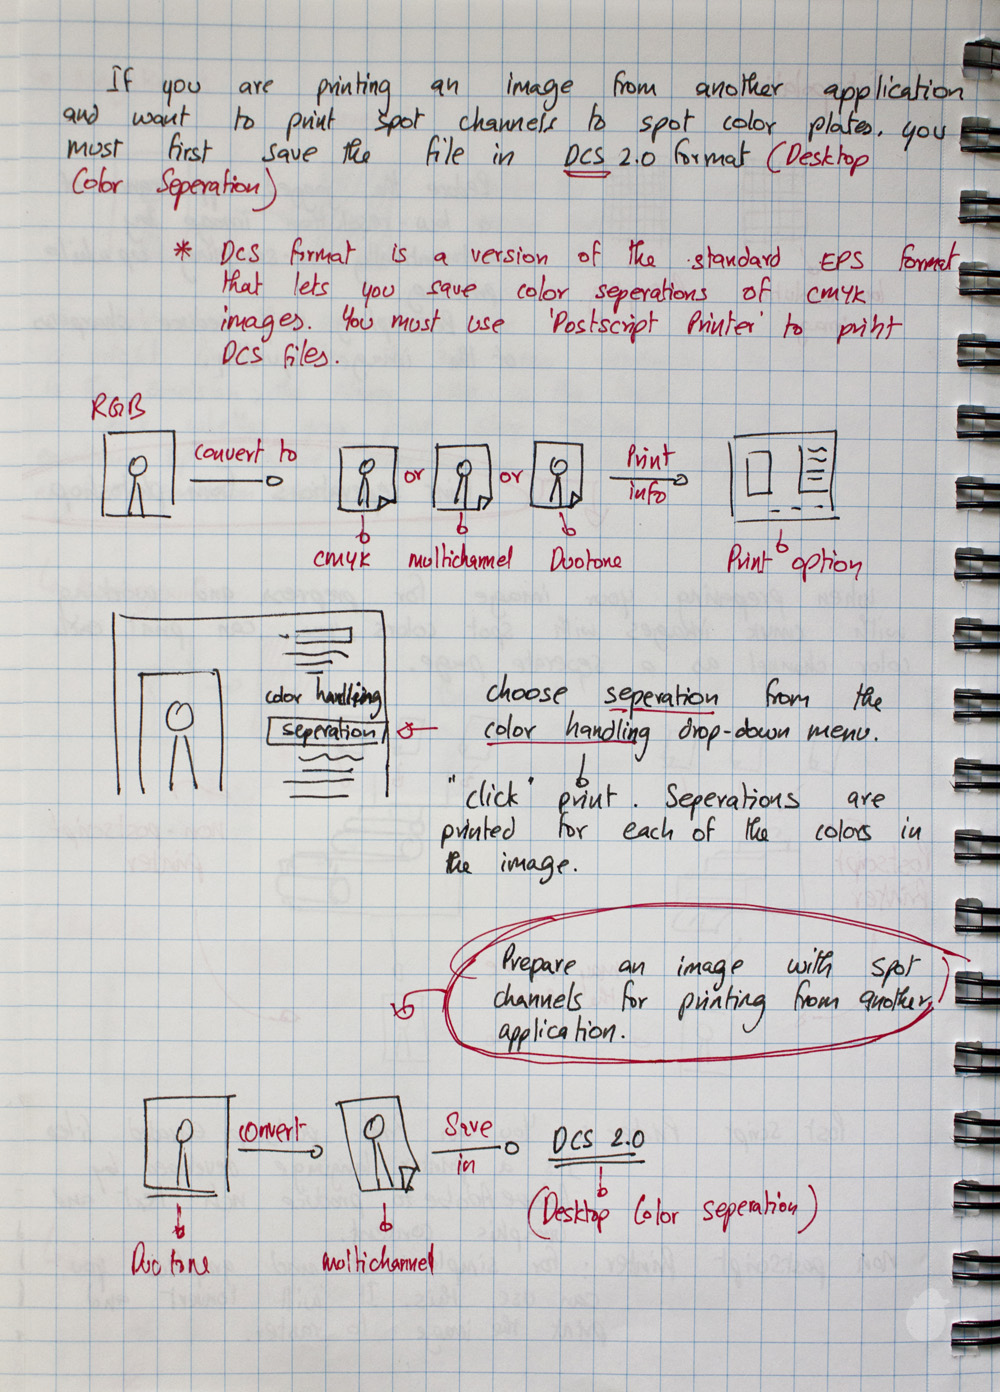 If you are printing an image from another application
and want to print spot channels to spot color plates. you
must first save the file in DCS 2.0 format (Desktop
Color Seperation)
* DCS format is a version of the standard EPS format
that lets you save color seperations of CMYK
images. You must use 'Postscript Printer' to print
DCS files.
RGB
convert to
or
or
Print
info
CMYK
multichannel
Duotone
Print option
color handling
seperation
choose seperation from the
color handling drop-down menu.
"click" print. Seperations are
printed for each of the colors in
the image.
Prepare an image with spot
channels for printing from another
application.
convert
Save
in
DCS 2.0
(Desktop Color seperation)
Duotone
multichannel